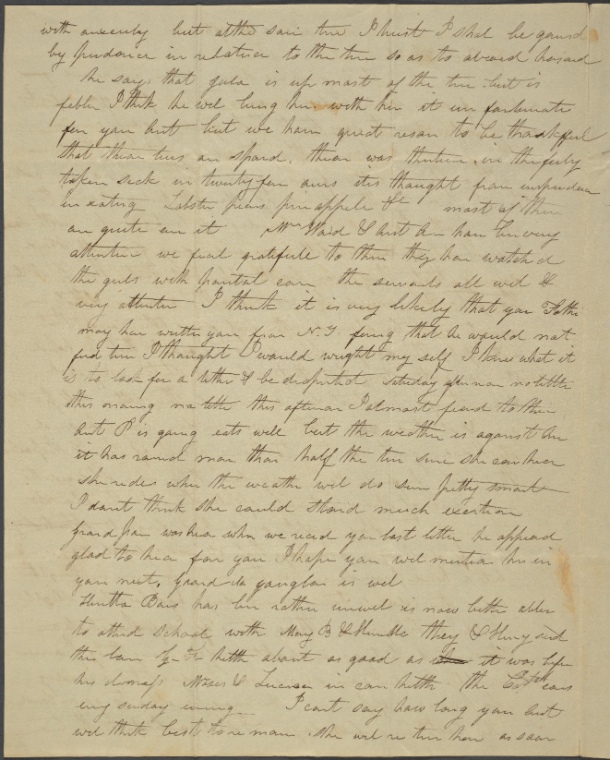 with anxienty but at the sam time I trust I shal be gaurd
by prudance in relation to the time so as to avoid hasard
he says that Jula is up most of the time but is
feble I think he wil bring her with him it un fortunate
for you but but we have great reson to be thankfful
that thear lives ar spard. thear was thirtine in the family
taken sick in twenty four ours it is thought from imprudance
in eating Lobster pine appele &c most of them
ar quite over it Mrs Ward & Aunt An hav ben very
attentive we feal gratifule to them they hav watched
the girls with parental care the servants all wel &
very attentive I think it is very likely that you Father
may hav writen you from N.Y. fering that he would not
find time I thought I would wright my self I know what it
is to look for a letter & be disapointed Saturday afternoon no letter
this morning no letter this afternoon I almost feard to then
Aunt P is gaing eats well but the weather is against her
it has raind more than half the time sinc she cam hear
she rides when the weather wil do sem pretty smart
I dont think she could stand much exertion
Grand Par was hear when we receivd you last letter he appeard
glad to hear from you I hope you wil mention him in
you next,
 has ben rather unwel is now better abler
to attend School with Mary B & they & Henry send
thear love helth about as good as it was before
his Moses & in comes
evry sunday evning I cant say how long you Aunt
wil think best to re main. She wil re turn hom as soon